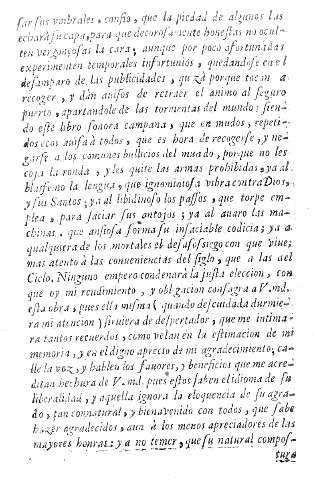 sar sus umbrales, confio, que la piedad de algunos las
echarà su capa, para que decorosamente honestas no ocul-
ten vergonçosas la cara; aunque por poco afortunadas
experimenten temporales infortunios, quedandose en el
desamparo de las publicidades, quizà porque tocan a
recoger, y dàn avisos de retraer el animo al seguro
puerto, apartandole de las tormentas del mundo: sien-
do este libro sonora campana, que en mudos, repeti-
dos ecos avisa à todos, que es hora de recogerse, y ne-
garse a los comunes bullicios del mundo, porque no les
coja la ronda, y les quite las armas prohibidas, ya al
blasfemo la lengua, que ignominiosa vibra contra Dios,
y sus Santos; ya al libidinoso los passos, que torpe em-
plea, para saciar sus antojos; ya al avaro las ma-
chinas, que ansiosa forma su insaciable codicia; ya a
qualquiera de los mortales el desasossiego con que vive;
mas atento à las conveniencias del siglo, que a las del
Cielo. Ninguno empero condenarà la justa eleccion, con
que oy mi rendimiento, y obligacion consagra a V. md.
esta obra, pues ella misma (quando descuidada durmie-
ra mi atencion) sirviera de despertador, que me intima-
ra tantos recuerdos, como velan en la estimacion de mi
memoria, y en el digno aprecio de mi agradecimiento; ca-
lle la voz, y hablen los favores, y beneficios que me acre-
ditan hechura de V. md. pues estos saben el idioma de su
liberalidad, y aquella ignora la eloquencia de su agra-
do, tan connatural, y bienavenido con todos, que sabe
hazer agradecidos, aun à los menos apreciadores de las
mayores honras: ya no temer, que su natural compos-
tura